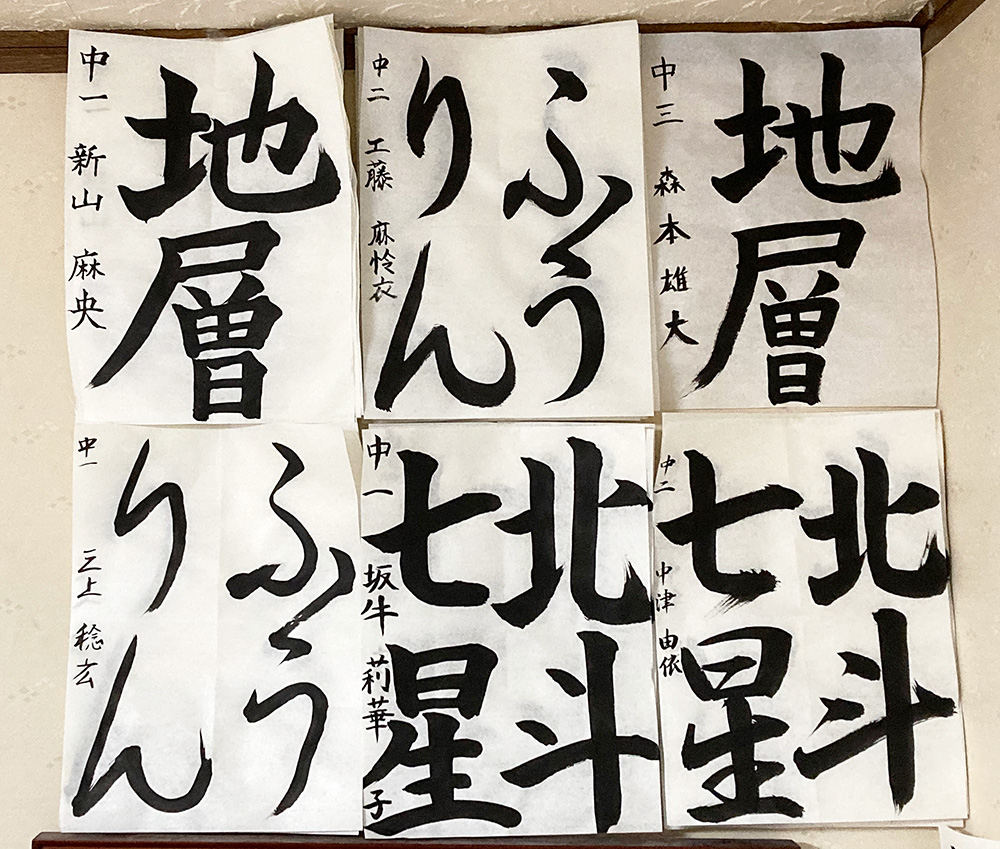 地層
中一 新山 麻央
ふう
りん
中二 工藤 麻怜衣
地層
中三 森本 雄大
ふう
りん
中一 三上 稔玄
北斗
七星
中一 坂牛 莉華子
北斗
七星
中二 中津 由依